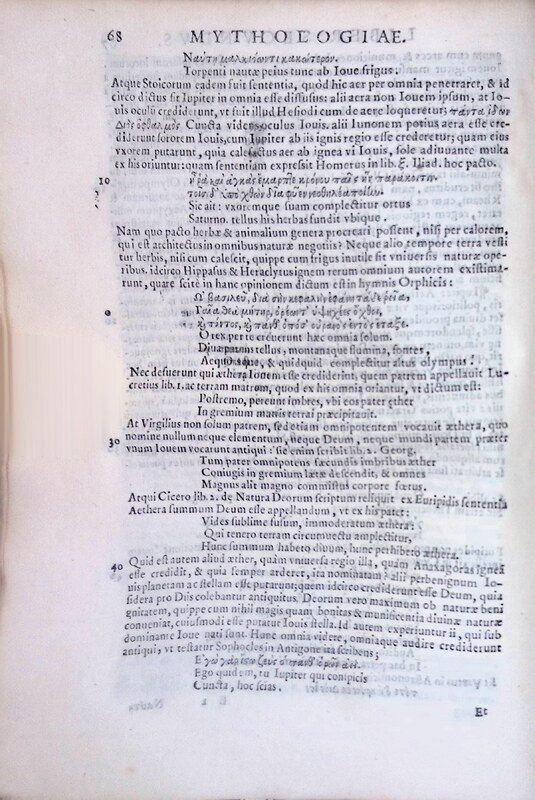 68 MYTHOLOGIAE.
Ναύτῃ μαλκιόωντι κακώτερον.
Torpenti nautæ peius tunc ab Ioue frigus.
Atque Stoicorum eadem fuit sententia, quòd hic aer per omnia penetraret, & id
circo dictus sit Iupiter in omnia esse diffusus: alii aera non Iouem ipsum, at Io-
uis oculũ crediderunt, vt fuit illud Hesiodi cum de aere loqueretur: πάντα ἰδὼν
Διὸς ὀφθαλμὸς Cuncta videns oculus Iouis. alii Iunonem potius aera esse cre-
diderunt sororem Iouis, cum Iupiter ab iis ignis regio esse crederetur; quam eius
vxorem putarunt, quia calefactus aer ab ignea vi Iouis, sole adiuuante multa
ex his oriuntur: quam sententiam expressit Homerus in lib. ξ. Iliad. hoc pacto.
10
Sic ait: vxoremque suam complectitur ortus
Saturno. tellus his herbas fundit vbique.
Nam quo pacto herbæ & animalium genera procreari possent, nisi per calorem,
qui est architectus in omnibus naturæ negotiis? Neque alio tempore terra vesti
tur herbis, nisi cum calescit, quippe cum frigus inutile sit vniuersis naturæ ope-
ribus. idcirco Hippasus & Heraclytus ignem rerum omnium autorem existima-
runt, quare scitè in hanc opinionem dictum est in hymnis Orphicis:
Ὦ βασιλεῦ, διὰ σὴν κεφαλὴν ἐφάνη τάδε ῥεῖα,
Γαῖα θεὰ μήτηρ, ὀρέων τ᾽ ὑψηχέες ὄχθοι,
O rex per te creuerunt hæc omnia solum.
Diua parens tellus, montanaque flumina, fontes,
Aequorque, & quidquid complectitur altus olympus.
Nec defuerunt qui æthera Iouem esse crediderint, quem patrem appellauit Lu-
cretius lib. 1. ac terram matrem, quod ex his omnia oriantur, vt dictum est:
Postremo, pereunt imbres, vbi eos pater ęther
In gremium matris terrai præcipitauit.
At Virgilius non solum patrem, sed etiam omnipotentem vocauit æthera, quo
30 nomine nullum neque elementum, neque Deum, neque mundi partem præter
vnum Iouem vocarunt antiqui: sic enim scribit lib. 2. Georg.
Tum pater omnipotens fæcundis imbribus æther
Coniugis in gremium lætæ descendit, & omnes
Magnus alit magno commistus corpore fœtus.
Atqui Cicero lib. 2. de Natura Deorum scriptum reliquit ex Euripidis sententia
Aethera summum Deum esse appellandum, vt ex his patet:
Vides sublime fusum, immoderatum æthera:
Qui tenero terram circumuectu amplectitur,
Hunc summum habeto diuum, hunc perhibeto æthera.
40 Quid est autem aliud æther, quàm vniuersa regio illa, quam Anaxagoras igneã
esse credidit, & quia semper arderet, ita nominatam? alii perbenignum Io-
uis planetam ac stellam esse putarunt; quem idcirco crediderunt esse Deum, quia
sidera pro Diis colebantur antiquitus. Deorum vero maximum ob naturæ beni
gnitatem, quippe cum nihil magis quam bonitas & munificentia diuinæ naturæ
conueniat, cuiusmodi esse putatur Iouis stella. Id autem experiuntur ii, qui sub
dominante Ioue nati sunt. Hunc omnia videre, omniaque audire crediderunt
antiqui, vt testatur Sophocles in Antigone ita scribens;
Ego quidem, tu Iupiter qui conspicis
Cuncta, hoc scias.
Et